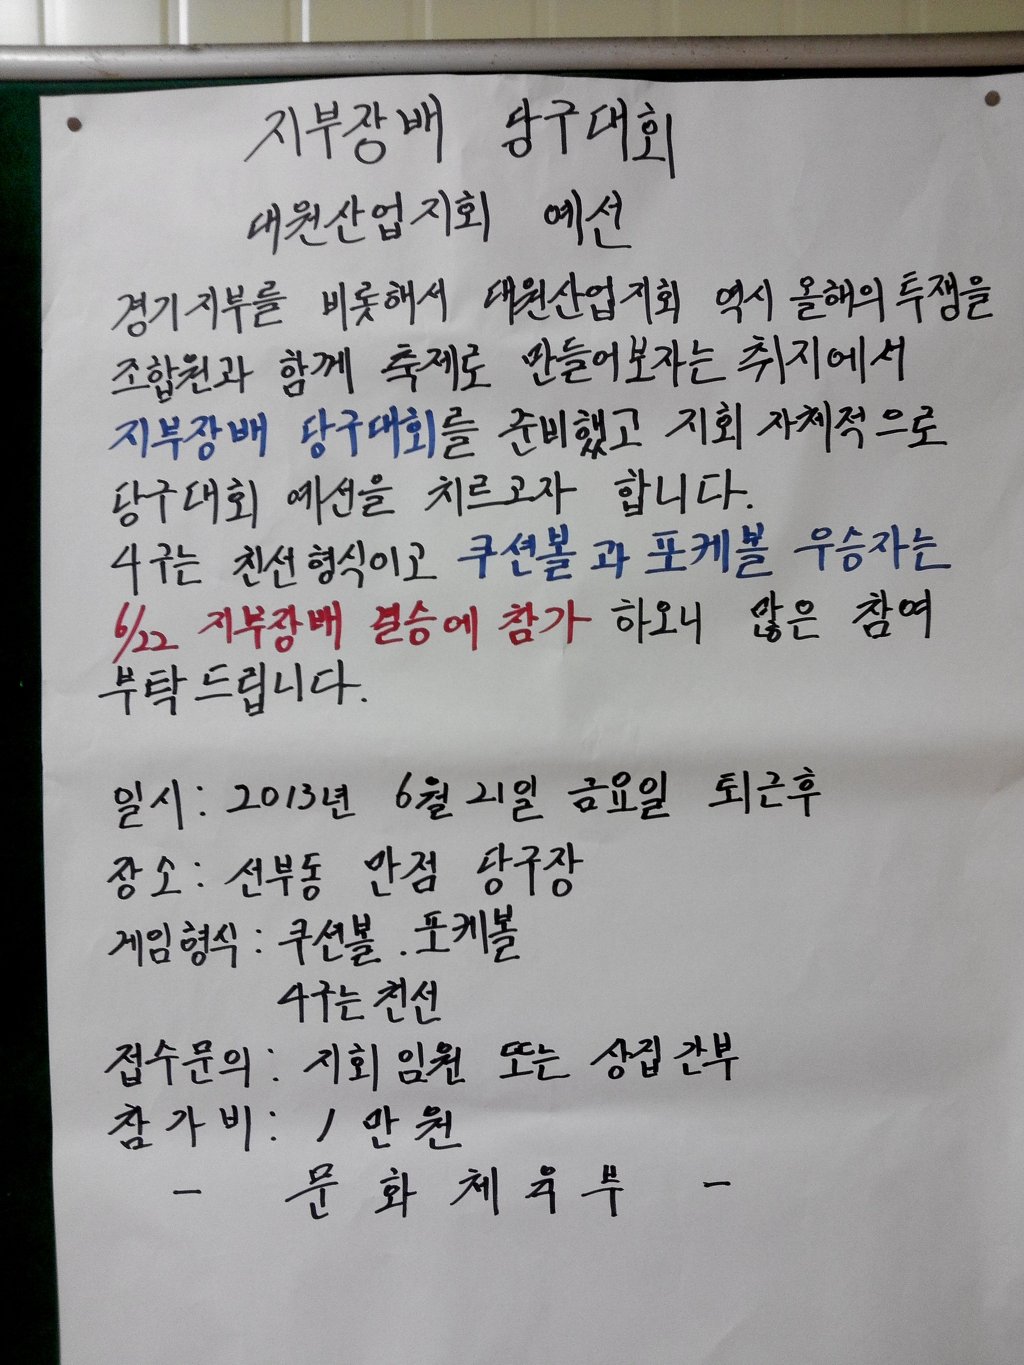 지부장배 당구대회
대원산업지회 예선
경기지부를 비롯해서 대원산업지회 역시 올해의 투쟁을
조합원과 함께 축제로 만들어보자는 취지에서
지부장배 당구대회를 준비했고 지회 자체적으로
당구대회 예선을 치르고자 합니다.
4구는 친선형식이고 쿠션볼과 포케볼 우승자는
6/22 지부장배 결승에 참가 하오니 많은 참여
부탁드립니다.
일시: 2013년 6월 21일 금요일 퇴근후
장소: 선부동 만점 당구장
게임형식: 쿠션볼. 포케볼
4구는 친선
접수문의: 지회임원 또는 상집간부
참가비: 1만원
- 문화체육부 -